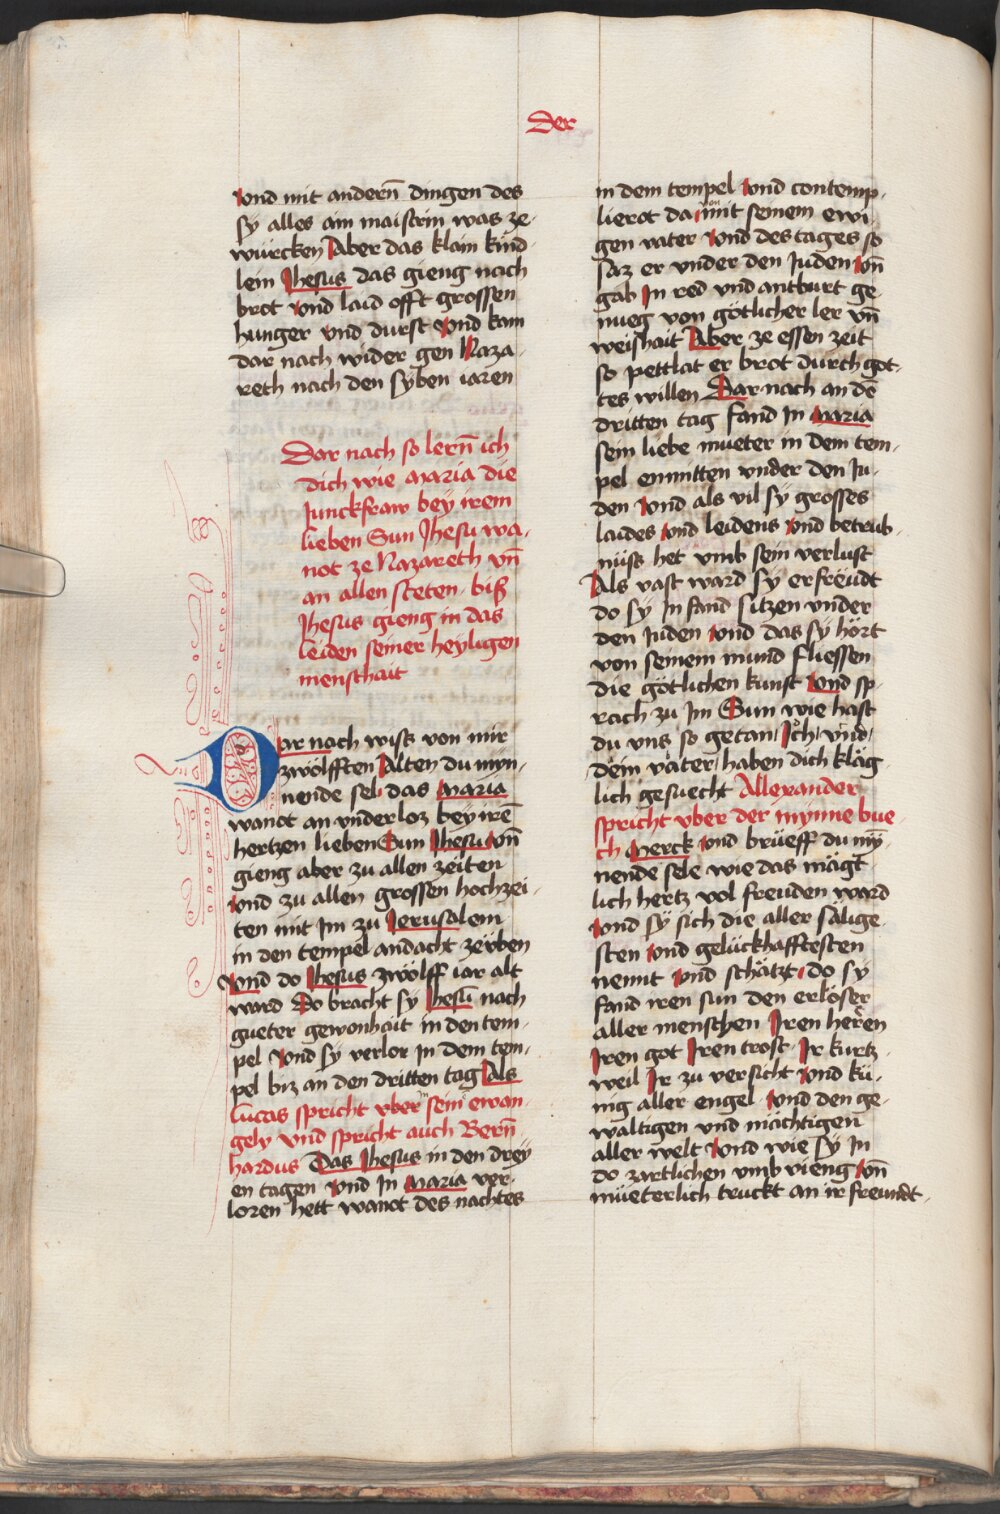 Der
vnd mit andern̄ dingen des
sy alles ain maistrin was ze
würcken Aber das klain kind
lein Jhesus das gieng nach
brot vnd laid offt grossen
hunger vnd durst Vnd kam
dar nach wider gen Naza
reth nach den syben iaren
Dar nach so lern̄ ich
dich wie Maria die
Junckfraw bey irem
lieben Sun Jhesu wa
not ze Nazareth vn̄
an allen steten biß
Jhesus gieng in das
leiden seiner heyligen
menschait
Dar nach wiss von mir
zwölfften Alten du myn
nende sel das Maria
wanot an vnderloz bey irē
hertzen lieben Sun Jhesu vn̄
gieng aber zu allen zeiten
vnd zu allen grossen hochzei
ten mit Im zu Jerusalem
in den tempel andacht ze üben
Vnd do Jhesus zwölff iar alt
ward Do bracht sy Jhesū nach
gueter gewonhait in den tem
pel Vnd sy verlor In dem tem
pel biz an den dritten tag Als
Lucas spricht vber sein ewan
gely vnd spricht auch Bern̄
hardus Das Jhesus in den drey
en tagen vnd In Maria ver
loren hett wanot des nachtes
in dem tempel vnd contemp
lierot da von mit seinem ewi
gen vater Vnd des tages so
saz er vnder den Juden vn̄
gab In red vnd antburt ge
nueg von götlicher ler vn̄
weishait Aber ze essen zeit
so pettlat er brot durch got
tes willen Dar nach an dē
dritten tag fand In Maria
sein liebe mueter in dem tem
pel enmitten vnder den Ju
den Vnd als vil sy grosses
laides vnd leidens vnd betrub
nüss het vmb sein verlust
Als vast ward sy erfreüdt
do sy In fand sitzen vnder
den Juden vnd das sy hört
von seinem mund fliessen
die götlichen kunst Vnd sp
rach zu Im Sun wie hast
du vns so getan Ich vnd
dein vater haben dich kläg
lich gesuecht Allexander
spricht vber der mynne bue
ch Merck vnd brüeff du mȳ
nende sele wie das mägt
lich hertz vol freuden ward
Vnd sy sich die aller sälige
sten vnd gelückhafftesten
nennt vnd schätzt do sy
fand iren sun den erlöser
aller menschen Iren herren
Iren got Iren trost Ir kurtz
weil Ir zu versicht vnd kü
nig aller engel Vnd den ge
waltigen vnd mächtigen
aller welt Vnd wie sy In
do zartlichen vmb vieng vn̄
müeterlich truckt an ir freundt